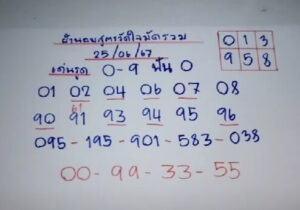 ผ่านดนสูตรวัดใจมัดรวม
25/06/67
เด่นรูด 0-9 ฟัน 0
0 1 3
9 5 8
01 02 04 06 07 08
61
90 91 93 94 95 96
095-195-901-583-038
00-99-33-55